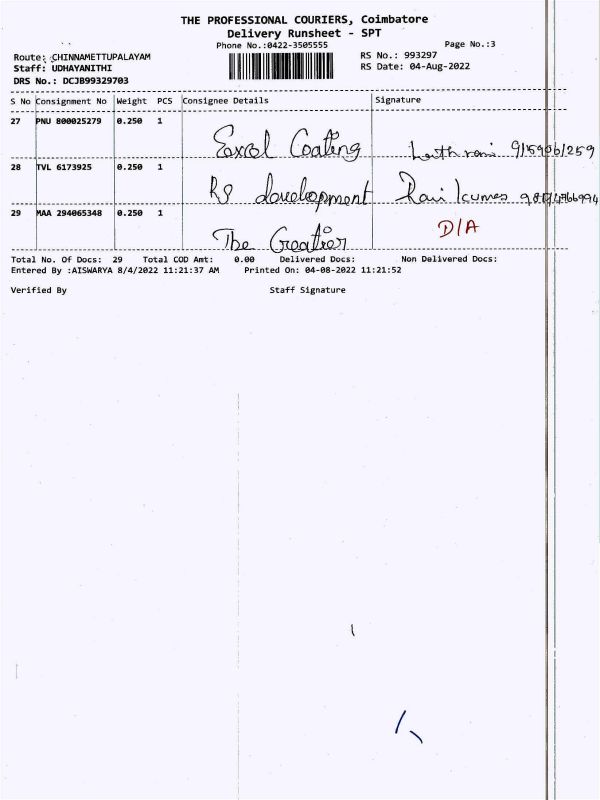 THE PROFESSIONAL COURIERS, Coimbatore
Delivery Runsheet - SPT
Phone No.:0422-3505555 Page No.:3
Route: CHINNAMETTUPALAYAM RS No.: 993297
Staff: UDHAYANITHI RS Date: 04-Aug-2022
DRS No.: DCJB99329703
S No Consignment No Weight PCS Consignee Details Signature
27 PNU 800025279 0.250 1
Coating
28 TVL 6173925 0.250 1
RS development Ravi Kumar
29 MAA 294065348 0.250 1
The Greatier D/A
Total No. Of Docs: 29 Total COD Amt: 0.00 Delivered Docs: Non Delivered Docs:
Entered By :AISWARYA 8/4/2022 11:21:37 AM Printed On: 04-08-2022 11:21:52
Verified By Staff Signature